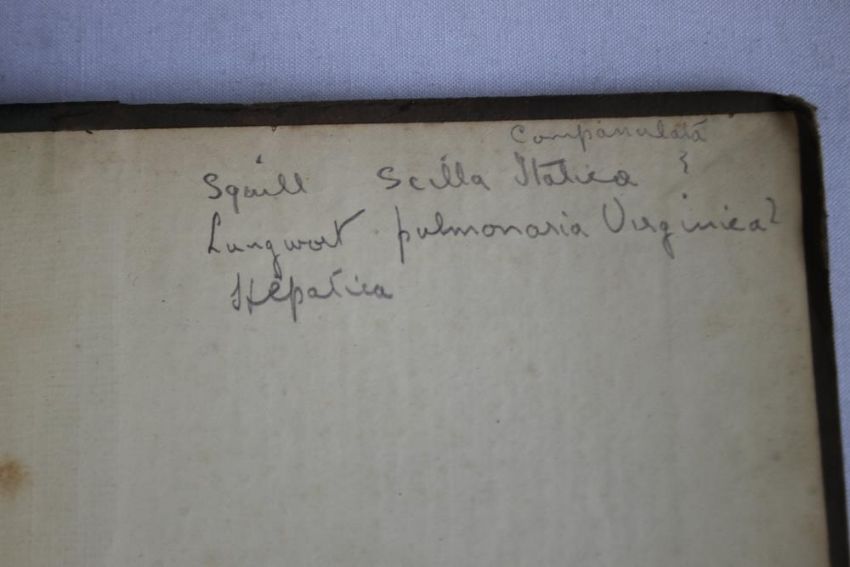 Companulata
Squill Scilla Italica ?
Lungwort pulmonaria Virginica?
Hepatica